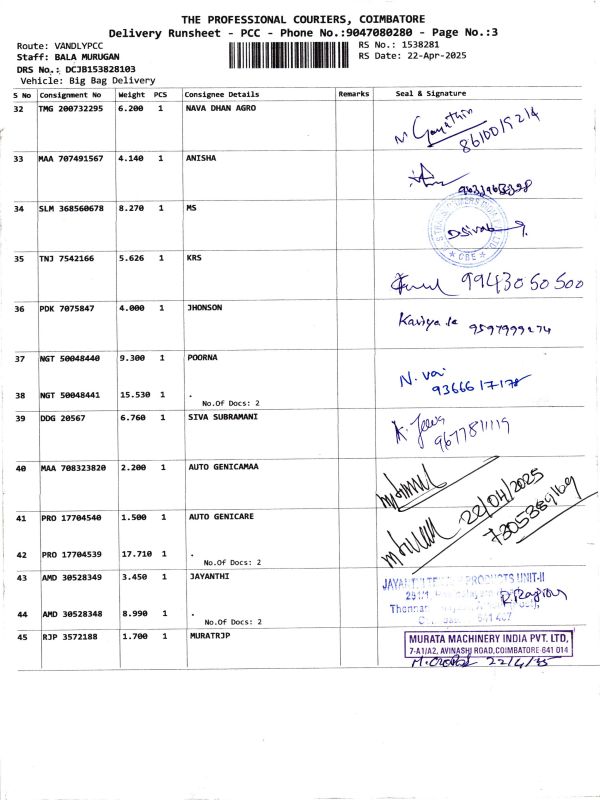 THE PROFESSIONAL COURIERS, COIMBATORE
Delivery Runsheet - PCC - Phone No.:9047080280 - Page No.:3
Route: VANDLYPCC
RS No.: 1538281
Staff: BALA MURUGAN
RS Date: 22-Apr-2025
DRS No.: DCJB153828103
Vehicle: Big Bag Delivery
S No Consignment No Weight PCS Consignee Details Remarks Seal & Signature
32 TMG 200732295 6.200 1 NAVA DHAN AGRO
33 MAA 707491567 4.140 1 ANISHA
34 SLM 368560678 8.270 1 MS
35 TNJ 7542166 5.626 1 KRS
9943050500
36 PDK 7075847 4.000 1 JHONSON
Kaviya
9597999274
37 NGT 50048440 9.300 1 POORNA
N. Vai
9366617178
38 NGT 50048441 15.530 1 .
No.Of Docs: 2
39 DDG 20567 6.760 1 SIVA SUBRAMANI
9677811119
40 MAA 708323820 2.200 1 AUTO GENICAMAA
41 PRO 17704540 1.500 1 AUTO GENICARE
22/04/2025
7305389169
42 PRO 17704539 17.710 1 .
No.Of Docs: 2
43 AMD 30528349 3.450 1 JAYANTHI
PRODUCTS UNIT-II
44 AMD 30528348 8.990 1 .
No.Of Docs: 2
45 RJP 3572188 1.700 1 MURATRJP
MURATA MACHINERY INDIA PVT. LTD,
7-A1/A2, AVINASHI ROAD, COIMBATORE-641 014
22/4/25